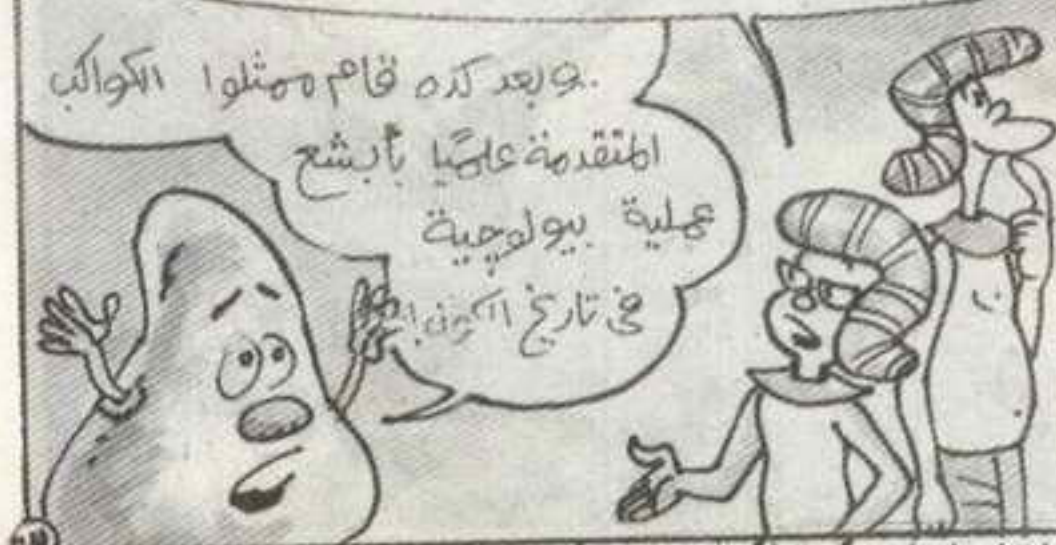 ..وبعد كده قام ممثلوا الكواكب
المتقدمة علميًا بأبشع
عملية بيولوجية
في تاريخ الكون!!